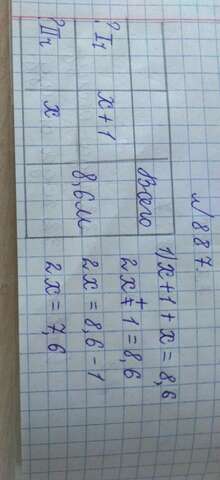 №887.
Всего
? Iч x + 1
8,6м
? IIч x
1) x + 1 + x = 8,6
2x + 1 = 8,6
2x = 8,6 - 1
2x = 7,6